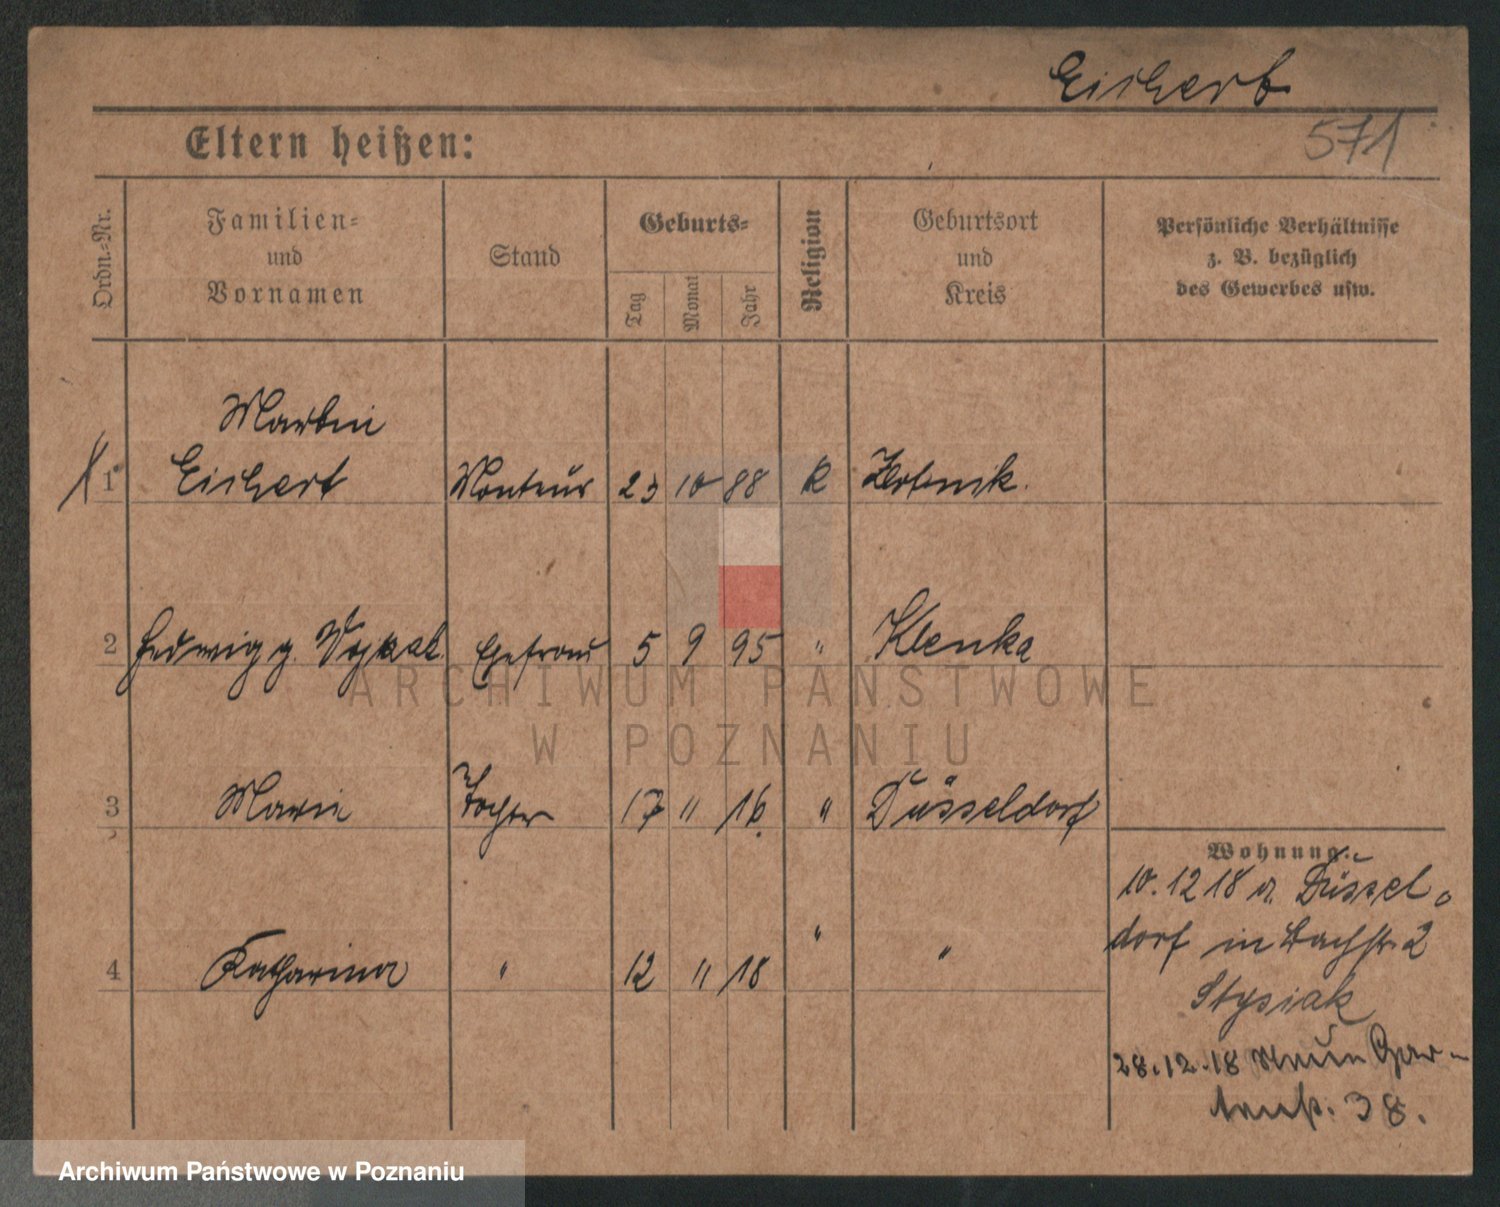 Eichert
571
Eltern heißen:
Ordn.-Nr.
Familien-
und
Vornamen
Stand
Geburts-
Tag
Monat
Jahr
Religion
Geburtsort
und
Kreis
Persönliche Verhältnisse
z. B. bezüglich
des Gewerbes usw.
Martin
1 Eichert Monteur 23 10 88 k
2 Hedwig g. Ehefrau 5 9 95 " Klenka
3 Marie Tochter 17 " 16 " Düsseldorf
4 Katharina " 12 " 18 " "
Wohnung:
10.12 18 a. Düssel-
dorf in Bachstr. 2
Stysiak
28.12.18 Neue Gar-
tenstr. 38.
ARCHIWUM PAŃSTWOWE
W POZNANIU
Archiwum Państwowe w Poznaniu